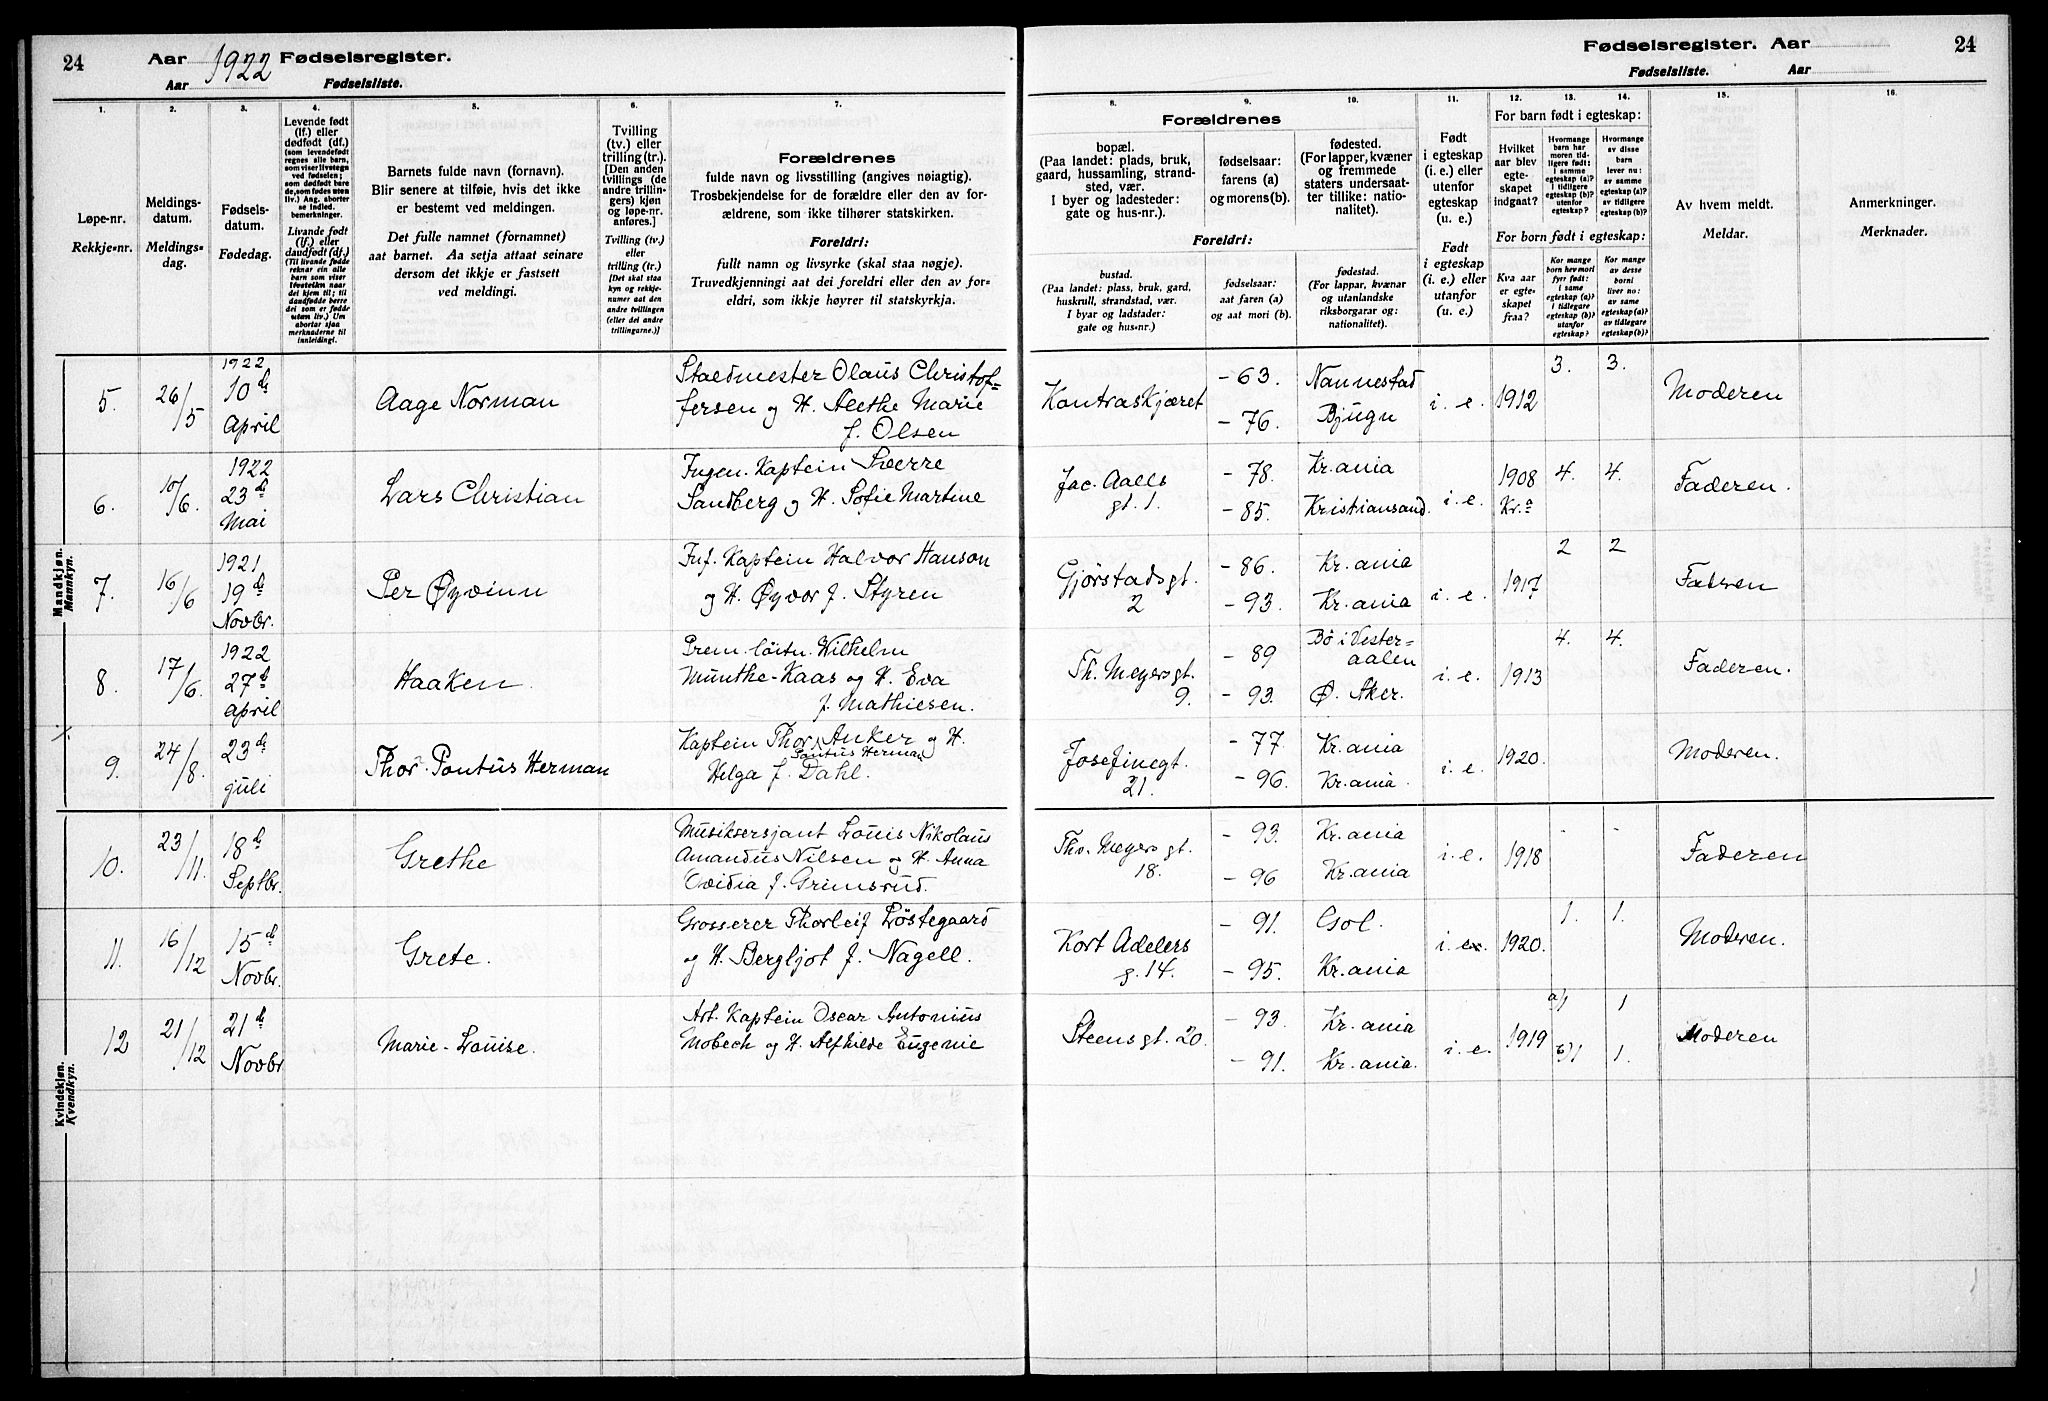 24 Aar 1922 Fødselsregister.
Aar Fødselsliste.
Fødselsregister. Aar 24
Fødselsliste. Aar
1. 2. 3. 4. 5. 6. 7.
Løpe-nr.
Rekkje-nr.
Meldings-
datum.
Meldings-
dag.
Fødsels-
datum.
Fødedag.
Levende født
(lf.) eller
dødfødt (df.)
(som levendefødt
regnes alle barn,
som viser livstegn
ved fødselen;
som dødfødt bare
de, som fødes uten
liv.) Ang. aborter
se indled.
bemerkninger.
Livande født
(lf.) eller
daudfødt (df.)
(Til livande fødde
reknar ein alle
barn som viser
livsteikn naar
dei kjem til; til
daudfødde berre
dei som er fødde
utan liv.) Um
abortar sjaa
merknaderne til
innleiding).
Barnets fulde navn (fornavn).
Blir senere at tilføie, hvis det ikke
er bestemt ved meldingen.
Det fulle namnet (fornamnet)
aat barnet. Aa setja attaat seinare
dersom det ikkje er fastsett
ved meldingi.
Tvilling
(tv.) eller
trilling (tr.).
[Den anden
tvillings (de
andre trillin-
gers) kjøn
og løpe-nr.
anføres.]
Tvilling (tv.)
eller
trilling (tr.)
[Det skal staa
kyn og rekkje-
numer aat den
andre tvillingen
(eller dei andre
trillingarne.)]
Forældrenes
fulde navn og livsstilling (angives nøiagtig).
Trosbekjendelse for de forældre eller den av for-
ældrene, som ikke tilhører statskirken.
Foreldri:
fullt namn og livsyrke (skal staa nøgje).
Truvedkjenningi aat dei foreldri eller den av for-
eldri, som ikkje høyrer til statskyrkja.
8. 9. 10. 11. 12. 13. 14. 15. 16.
Forældrenes
bopæl.
(Paa landet: plads, bruk,
gaard, hussamling, strand-
sted, vær.
I byer og ladesteder:
gate og hus-nr.).
fødselsaar:
farens (a)
og morens (b).
fødested.
(For lapper, kvæner
og fremmede
staters undersaat-
ter tillike: natio-
nalitet).
Foreldri:
bustad.
(Paa landet: plass, bruk, gard,
huskrull, strandstad, vær.
I byar og ladstader:
gate og hus-nr.)
fødselsaar:
aat faren (a)
og aat mori (b).
fødestad.
(For lappar, kvænar
og utanlandske
riksborgarar og:
nationalitet).
Født
i egteskap
(i. e.) eller
utenfor
egteskap
(u. e.)
Født
i egteskap
(i. e.) eller
utanfor
(u. e.)
For barn født i egteskap:
Hvilket
aar blev
egte-
skapet
indgaat?
Hvormange
barn har
moren tid-
ligere født:
i samme
egteskap (a)?
i tidligere
egteskap (b)?
utenfor
egteskap?
Hvormange
av disse
barn
lever nu:
av samme
egteskap (a)?
av tidligere
egteskap (b)?
For born født i egteskap:
Kva aar
er egte-
skapet
fraa?
Kor mange
born hev mori
fyrr født:
i same
egteskap (a)?
i tidlegare
egteskap (b)?
utanfor
egteskap?
Kor mange
av desse
borni
liver no:
av same
egteskap (a)?
av tidlegare
egteskap (b)?
Av hvem meldt.
Meldar.
Anmerkninger.
Merknader.
Mandkjøn.
Mannkyn.
5. 26/5 1922 10de April Aage Norman
Staldmester Olaus Christof-
fersen og H. Alethe Marie
f. Olsen
Kontraskjæret - 63. - 76. Nannestad Bjugn i. e. 1912 3. 3. Moderen
6. 10/6. 1922 23de Mai Lars Christian
Ingen. Kaptein Sverre
Sandberg og H. Sofie Martine
Jac. Aalls gt. 1. - 78. - 85. Kr.ania Kristiansand. i. e. 1908 Kr.a 4. 4. Faderen.
7. 16/6 1921 19de Novbr. Per Øyvinn
Inf. Kaptein Halvor Hanson
og H. Øyvor f. Styren
Gjørstadsgt. 2 - 86. - 93. Kr. ania Kr. ania i. e. 1917 2 2 Faderen
8. 17/6. 1922 27de April Haaken.
Prem. löitn. Wilhelm
Munthe-Kaas og H. Eva
f. Mathiesen.
Th. Meyers gt. 9. - 89 - 93. Bö i Vester-
aalen Ø. Aker. i. e. 1913 4. 4. Faderen.
9. 24/8. 23de juli Thor Pontus Herman
Kaptein Thor Anker og H.
Pontus Herman
Helga f. Dahl.
Josefinegt. 21. - 77. - 96. Kr. ania Kr. ania. i. e. 1920. Moderen.
Kvindekjøn.
Kvendkyn.
10. 23/11. 18de Septbr. Grethe
Musiksersjant Louis Nikolaus
Amandus Nilsen og H. Anna
Ovidia f. Grimsrud.
Thv. Meyers gt. 18. - 93. - 96 Kr. ania Kr. ania i. e. 1918 - - Faderen
11. 16/12 15de Novbr. Grete.
Grosserer Thorleif Løstegaard
og H. Bergljot f. Nagell.
Kort Adelers g. 14. - 91. - 95. Gol. Kr. ania i. e. 1920. 1. 1. Moderen.
12 21/12 21de Novbr Marie-Louise.
Art. Kaptein Oscar Antonius
Mobech og H. Alfhilde Eugenie
Steens gt. 20. - 93. - 91. Kr. ania Kr. ania. i. e. 1919 a)1 1 b)1 1. Moderen